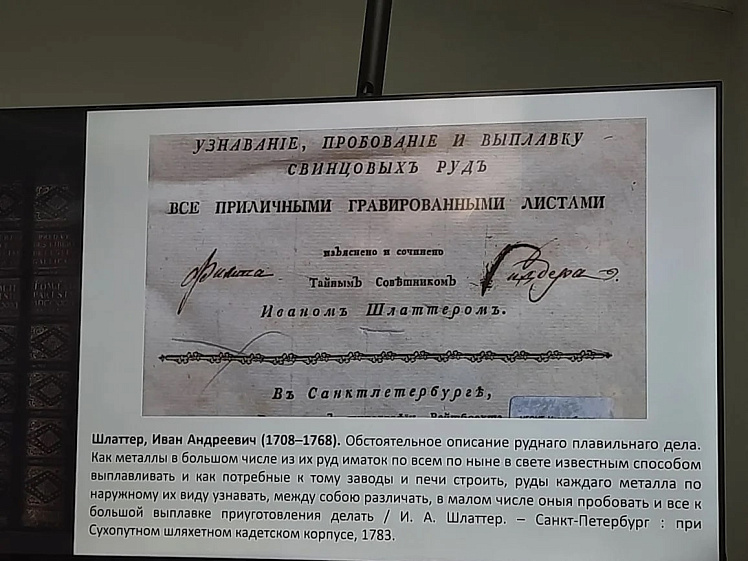 УЗНАВАНІЕ, ПРОБОВАНІЕ И ВЫПЛАВКУ
СВИНЦОВЫХЪ РУДЪ
ВСЕ ПРИЛИЧНЫМИ ГРАВИРОВАННЫМИ ЛИСТАМИ
изъяснено и сочинено
Тайнымъ Совѣтникомъ
Иваномъ Шлаттеромъ.
Въ Санктпетербургѣ,
Шлаттер, Иван Андреевич (1708–1768). Обстоятельное описание руднаго плавильнаго дела.
Как металлы в большом числе из их руд иматок по всем по ныне в свете известным способом
выплавливать и как потребные к тому заводы и печи строить, руды каждаго металла по
наружному их виду узнавать, между собою различать, в малом числе оныя пробовать и все к
большой выплавке приуготовления делать / И. А. Шлаттер. – Санкт-Петербург : при
Сухопутном шляхетном кадетском корпусе, 1783.